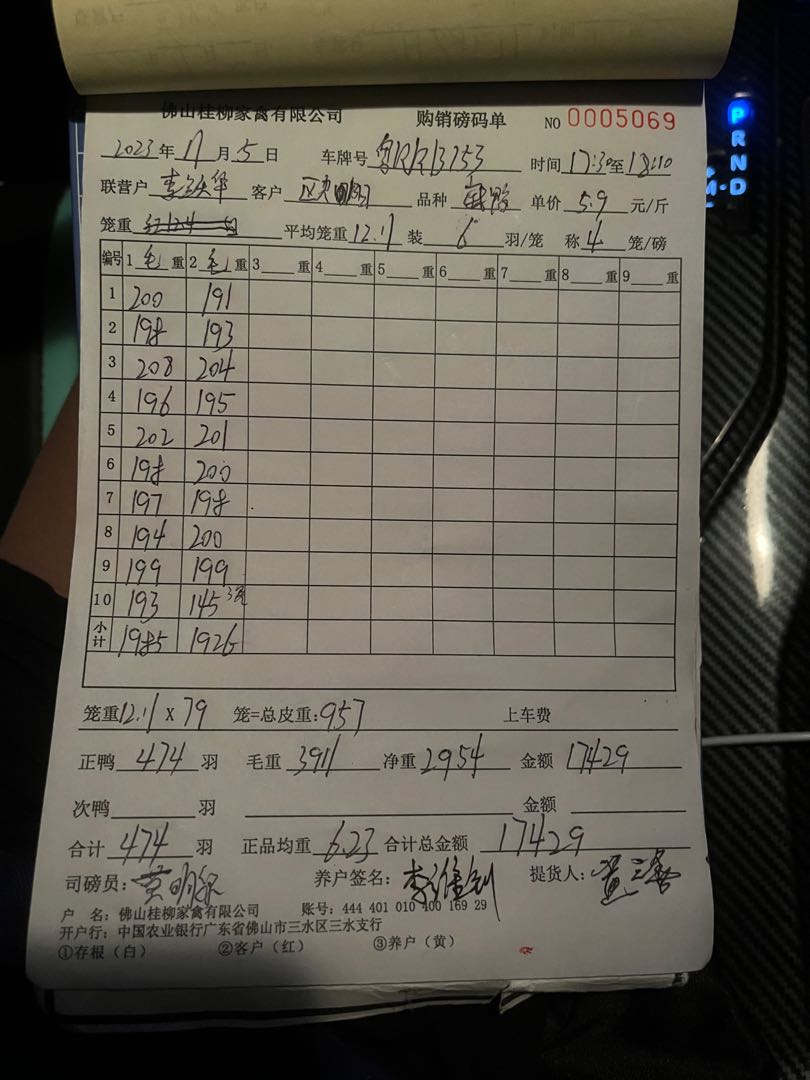 佛山桂柳家禽有限公司 购销磅码单 NO 0005069
2023年11月5日 车牌号 3753 时间 17:30至18:10
联营户 客户 品种 单价 5.9 元/斤
笼重 平均笼重 12.11 装 6 羽/笼 称 4 笼/磅
编号 1 毛 重 2 毛 重 3 重 4 重 5 重 6 重 7 重 8 重 9 重
1 200 191
2 198 193
3 208 204
4 196 195
5 202 201
6 198 200
7 197 198
8 194 200
9 199 199
10 193 145 3笼
小计 1985 1926
笼重 12.11 X 79 笼=总皮重:957 上车费
正鸭 474 羽 毛重 3911 净重 2954 金额 17429
次鸭 羽 金额
合计 474 羽 正品均重 6.23 合计总金额 17429
司磅员: 养户签名: 提货人:
户 名:佛山桂柳家禽有限公司 账号:444 401 010 400 169 29
开户行:中国农业银行广东省佛山市三水区三水支行
①存根(白) ②客户(红) ③养户(黄)
P
R
N
D